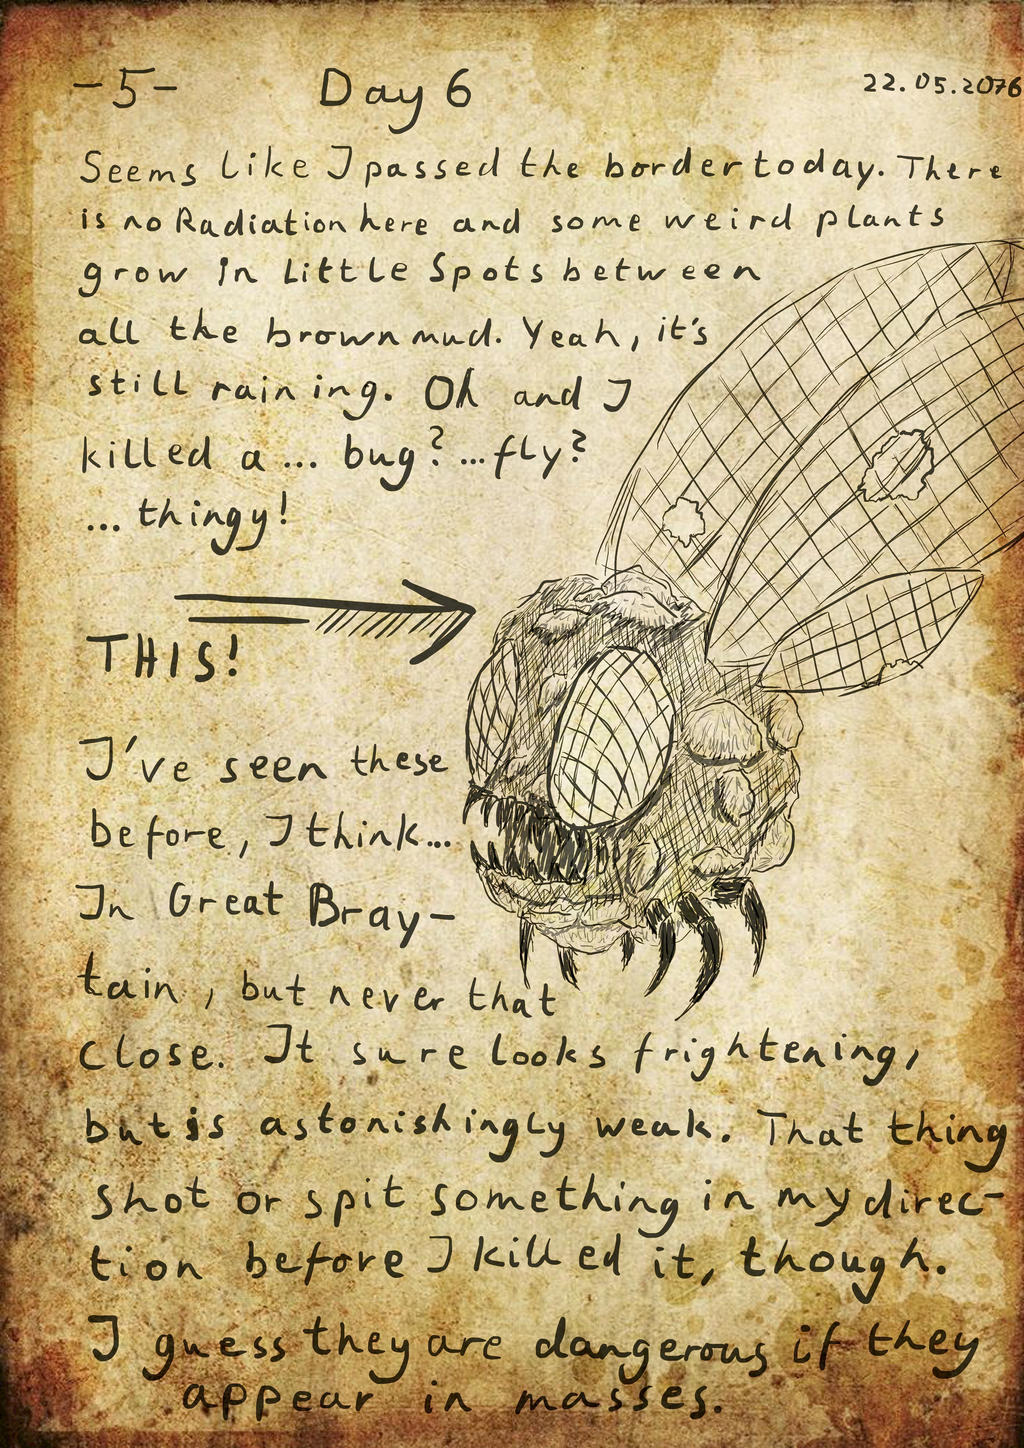 -5- Day 6 22.05.2076
Seems like I passed the border today. There
is no Radiation here and some weird plants
grow in Little Spots between
all the brown mud. Yeah, it's
still raining. Oh and I
killed a ... bug? ...fly?
... thingy!
THIS!
I've seen these
before, I think...
In Great Bray-
tain, but never that
close. It sure looks frightening,
but is astonishingly weak. That thing
shot or spit something in my direc-
tion before I killed it, though.
I guess they are dangerous if they
appear in masses.